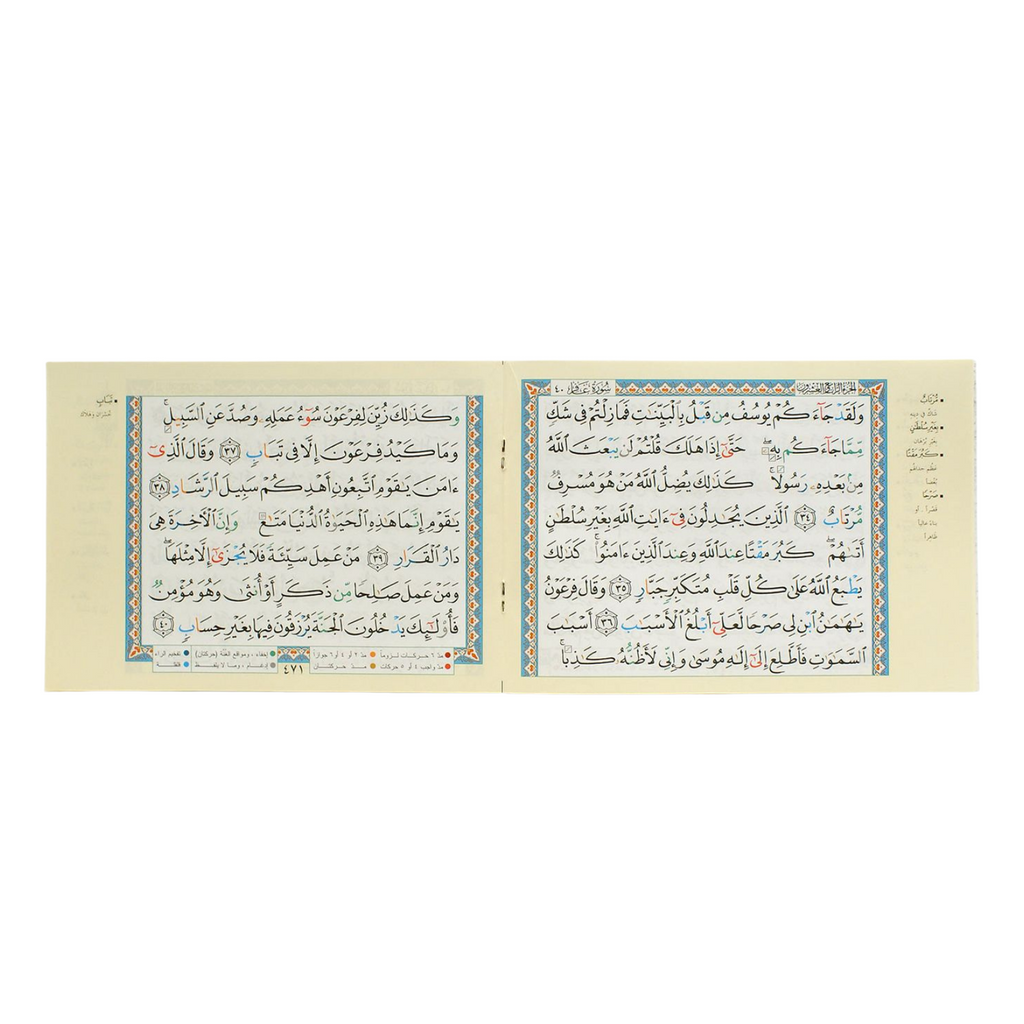 الجزء الرابع والعشرون
سورة غافر ٤٠
وَلَقَدْ جَآءَكُمْ يُوسُفُ مِن قَبْلُ بِٱلْبَيِّنَٰتِ فَمَا زِلْتُمْ فِى شَكٍّ
مِّمَّا جَآءَكُم بِهِۦ ۖ حَتَّىٰٓ إِذَا هَلَكَ قُلْتُمْ لَن يَبْعَثَ ٱللَّهُ
مِنۢ بَعْدِهِۦ رَسُولًا ۚ كَذَٰلِكَ يُضِلُّ ٱللَّهُ مَنْ هُوَ مُسْرِفٌ
مُّرْتَابٌ ٣٤ ٱلَّذِينَ يُجَٰدِلُونَ فِىٓ ءَايَٰتِ ٱللَّهِ بِغَيْرِ سُلْطَٰنٍ
أَتَىٰهُمْ ۖ كَبُرَ مَقْتًا عِندَ ٱللَّهِ وَعِندَ ٱلَّذِينَ ءَامَنُوا۟ ۚ كَذَٰلِكَ
يَطْبَعُ ٱللَّهُ عَلَىٰ كُلِّ قَلْبِ مُتَكَبِّرٍ جَبَّارٍ ٣٥ وَقَالَ فِرْعَوْنُ
يَٰهَٰمَٰنُ ٱبْنِ لِى صَرْحًا لَّعَلِّىٓ أَبْلُغُ ٱلْأَسْبَٰبَ ٣٦ أَسْبَٰبَ
ٱلسَّمَٰوَٰتِ فَأَطَّلِعَ إِلَىٰٓ إِلَٰهِ مُوسَىٰ وَإِنِّى لَأَظُنُّهُۥ كَٰذِبًا ۚ
مُّرْتَابٌ
شاكٌّ في دينه
بِغَيْرِ سُلْطَٰنٍ
بغير برهان
كَبُرَ مَقْتًا
عظم جدالهم
بغضا
صَرْحًا
قصراً . أو
بناءً عالياً
ظاهراً
وَكَذَٰلِكَ زُيِّنَ لِفِرْعَوْنَ سُوٓءُ عَمَلِهِۦ وَصُدَّ عَنِ ٱلسَّبِيلِ ۚ
وَمَا كَيْدُ فِرْعَوْنَ إِلَّا فِى تَبَابٍ ٣٧ وَقَالَ ٱلَّذِىٓ
ءَامَنَ يَٰقَوْمِ ٱتَّبِعُونِ أَهْدِكُمْ سَبِيلَ ٱلرَّشَادِ ٣٨
يَٰقَوْمِ إِنَّمَا هَٰذِهِ ٱلْحَيَوٰةُ ٱلدُّنْيَا مَتَٰعٌ وَإِنَّ ٱلْءَاخِرَةَ هِىَ
دَارُ ٱلْقَرَارِ ٣٩ مَنْ عَمِلَ سَيِّئَةً فَلَا يُجْزَىٰٓ إِلَّا مِثْلَهَا ۖ
وَمَنْ عَمِلَ صَٰلِحًا مِّن ذَكَرٍ أَوْ أُنثَىٰ وَهُوَ مُؤْمِنٌ
فَأُو۟لَٰٓئِكَ يَدْخُلُونَ ٱلْجَنَّةَ يُرْزَقُونَ فِيهَا بِغَيْرِ حِسَابٍ ٤٠
تَبَابٍ
خسران وهلاك
مدّ ٦ حركات لزوماً مدّ ٢ أو ٤ أو ٦ جوازاً
مدّ واجب ٤ أو ٥ حركات مدّ حركتان
٤٧١
إخفاء، ومواقع الغنّة (حركتان) تفخيم الراء
إدغام، وما لا يلفظ قلقلة